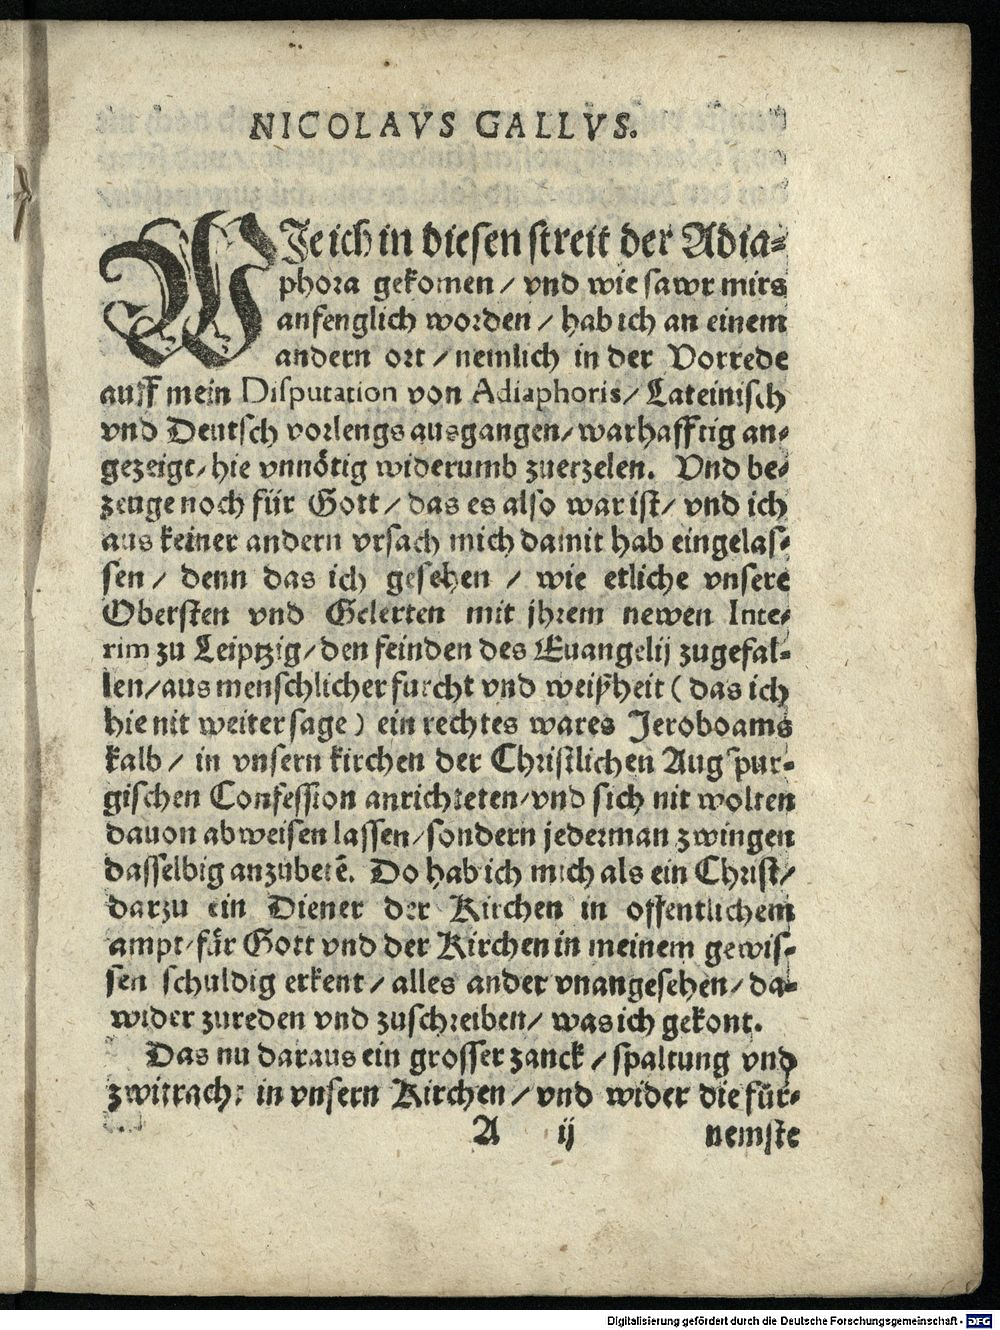 NICOLAVS GALLVS.
WJe ich in diesen streit der Adia-
phora gekomen / vnd wie sawr mirs
anfenglich worden / hab ich an einem
andern ort / nemlich in der Vorrede
auff mein Disputation von Adiaphoris / Lateinisch
vnd Deutsch vorlengs ausgangen / warhafftig an-
gezeigt / hie vnnötig widerumb zuerzelen. Vnd be-
zeuge noch für Gott / das es also war ist / vnd ich
aus keiner andern vrsach mich damit hab eingelas-
sen / denn das ich gesehen / wie etliche vnsere
Obersten vnd Gelerten mit jhrem newen Inte-
rim zu Leiptzig / den feinden des Euangelij zugefal-
len / aus menschlicher furcht vnd weißheit ( das ich
hie nit weiter sage ) ein rechtes wares Jeroboams
kalb / in vnsern kirchen der Christlichen Augspur-
gischen Confession anrichteten / vnd sich nit wolten
dauon abweisen lassen / sondern jederman zwingen
dasselbig anzubetē. Do hab ich mich als ein Christ /
darzu ein Diener der Kirchen in offentlichem
ampt / für Gott vnd der Kirchen in meinem gewis-
sen schuldig erkent / alles ander vnangesehen / da-
wider zureden vnd zuschreiben / was ich gekont.
Das nu daraus ein grosser zanck / spaltung vnd
zwitracht in vnsern Kirchen / vnd wider die für-
A ij nemste
Digitalisierung gefördert durch die Deutsche Forschungsgemeinschaft - DFG